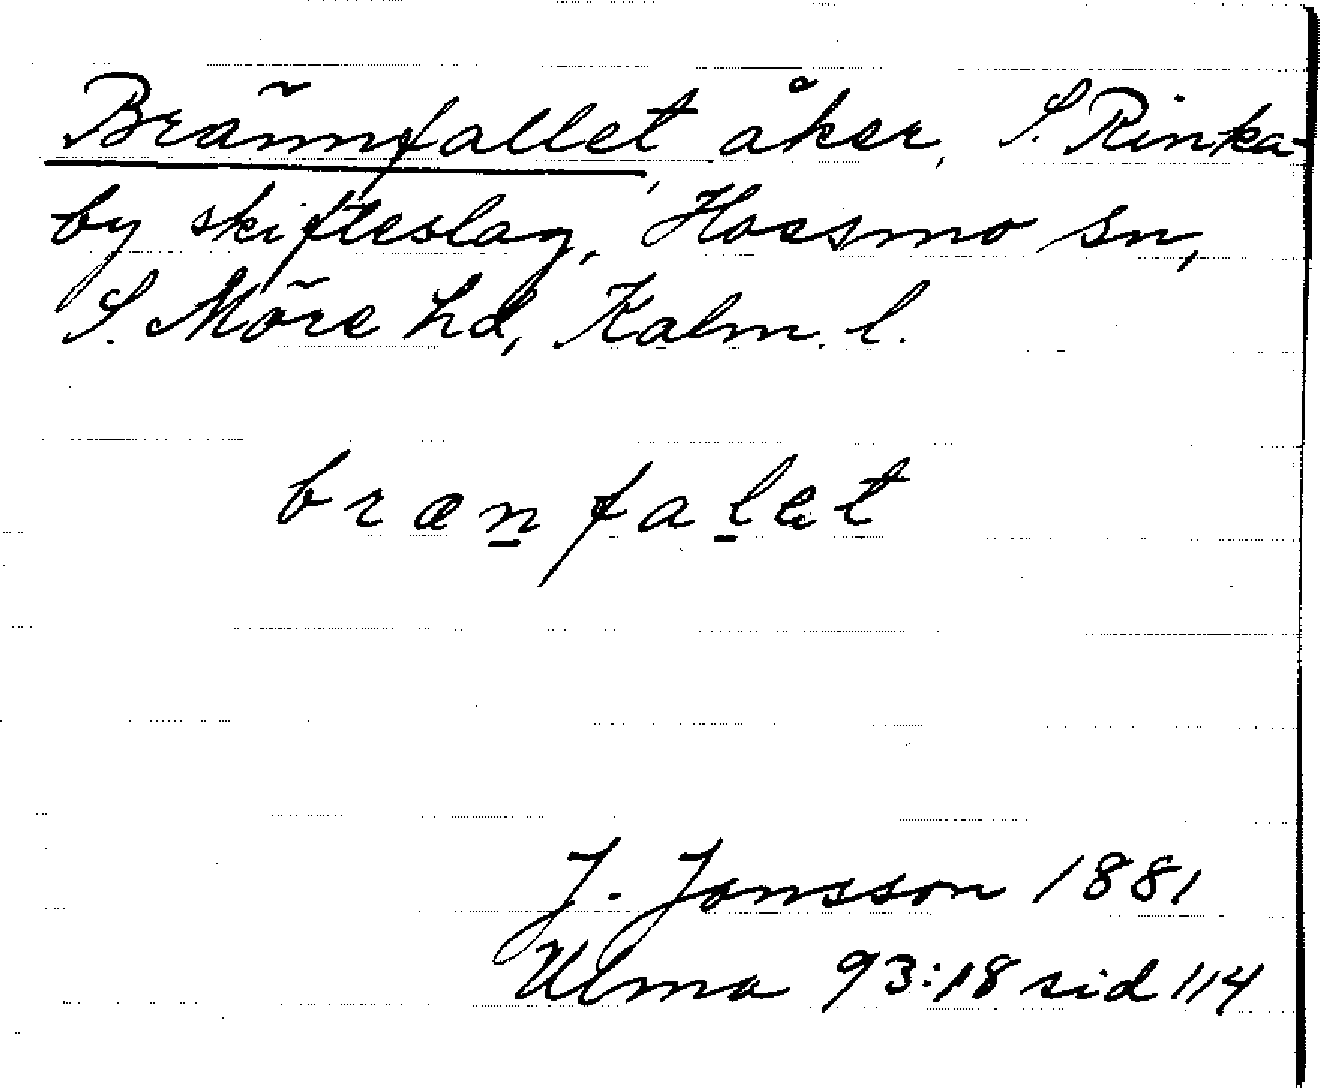 Brännfallet, åker, S. Rinka-
by skifteslag, Hossmo sn,
S. Möre hd, Kalm. l.
brænfalet
J. Jonsson 1881
Ulma 93:18 sid 114